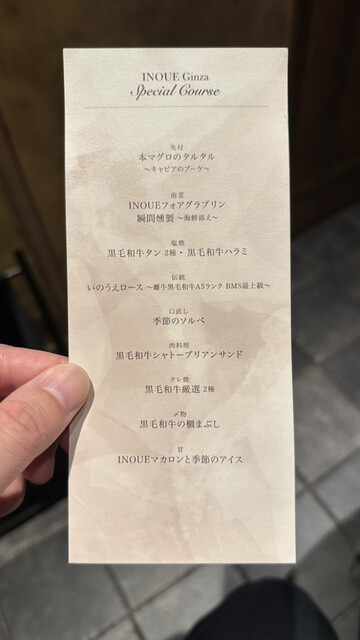 INOUE Ginza
Special Course
先付
本マグロのタルタル
～キャビアのブーケ～
前菜
INOUEフォアグラプリン
瞬間燻製 ～海鮮添え～
塩焼
黒毛和牛タン 2種・黒毛和牛ハラミ
伝統
いのうえロース ～雌牛黒毛和牛A5ランク BMS最上級～
口直し
季節のソルベ
肉料理
黒毛和牛シャトーブリアンサンド
タレ焼
黒毛和牛厳選 2種
〆物
黒毛和牛の櫃まぶし
甘
INOUEマカロンと季節のアイス